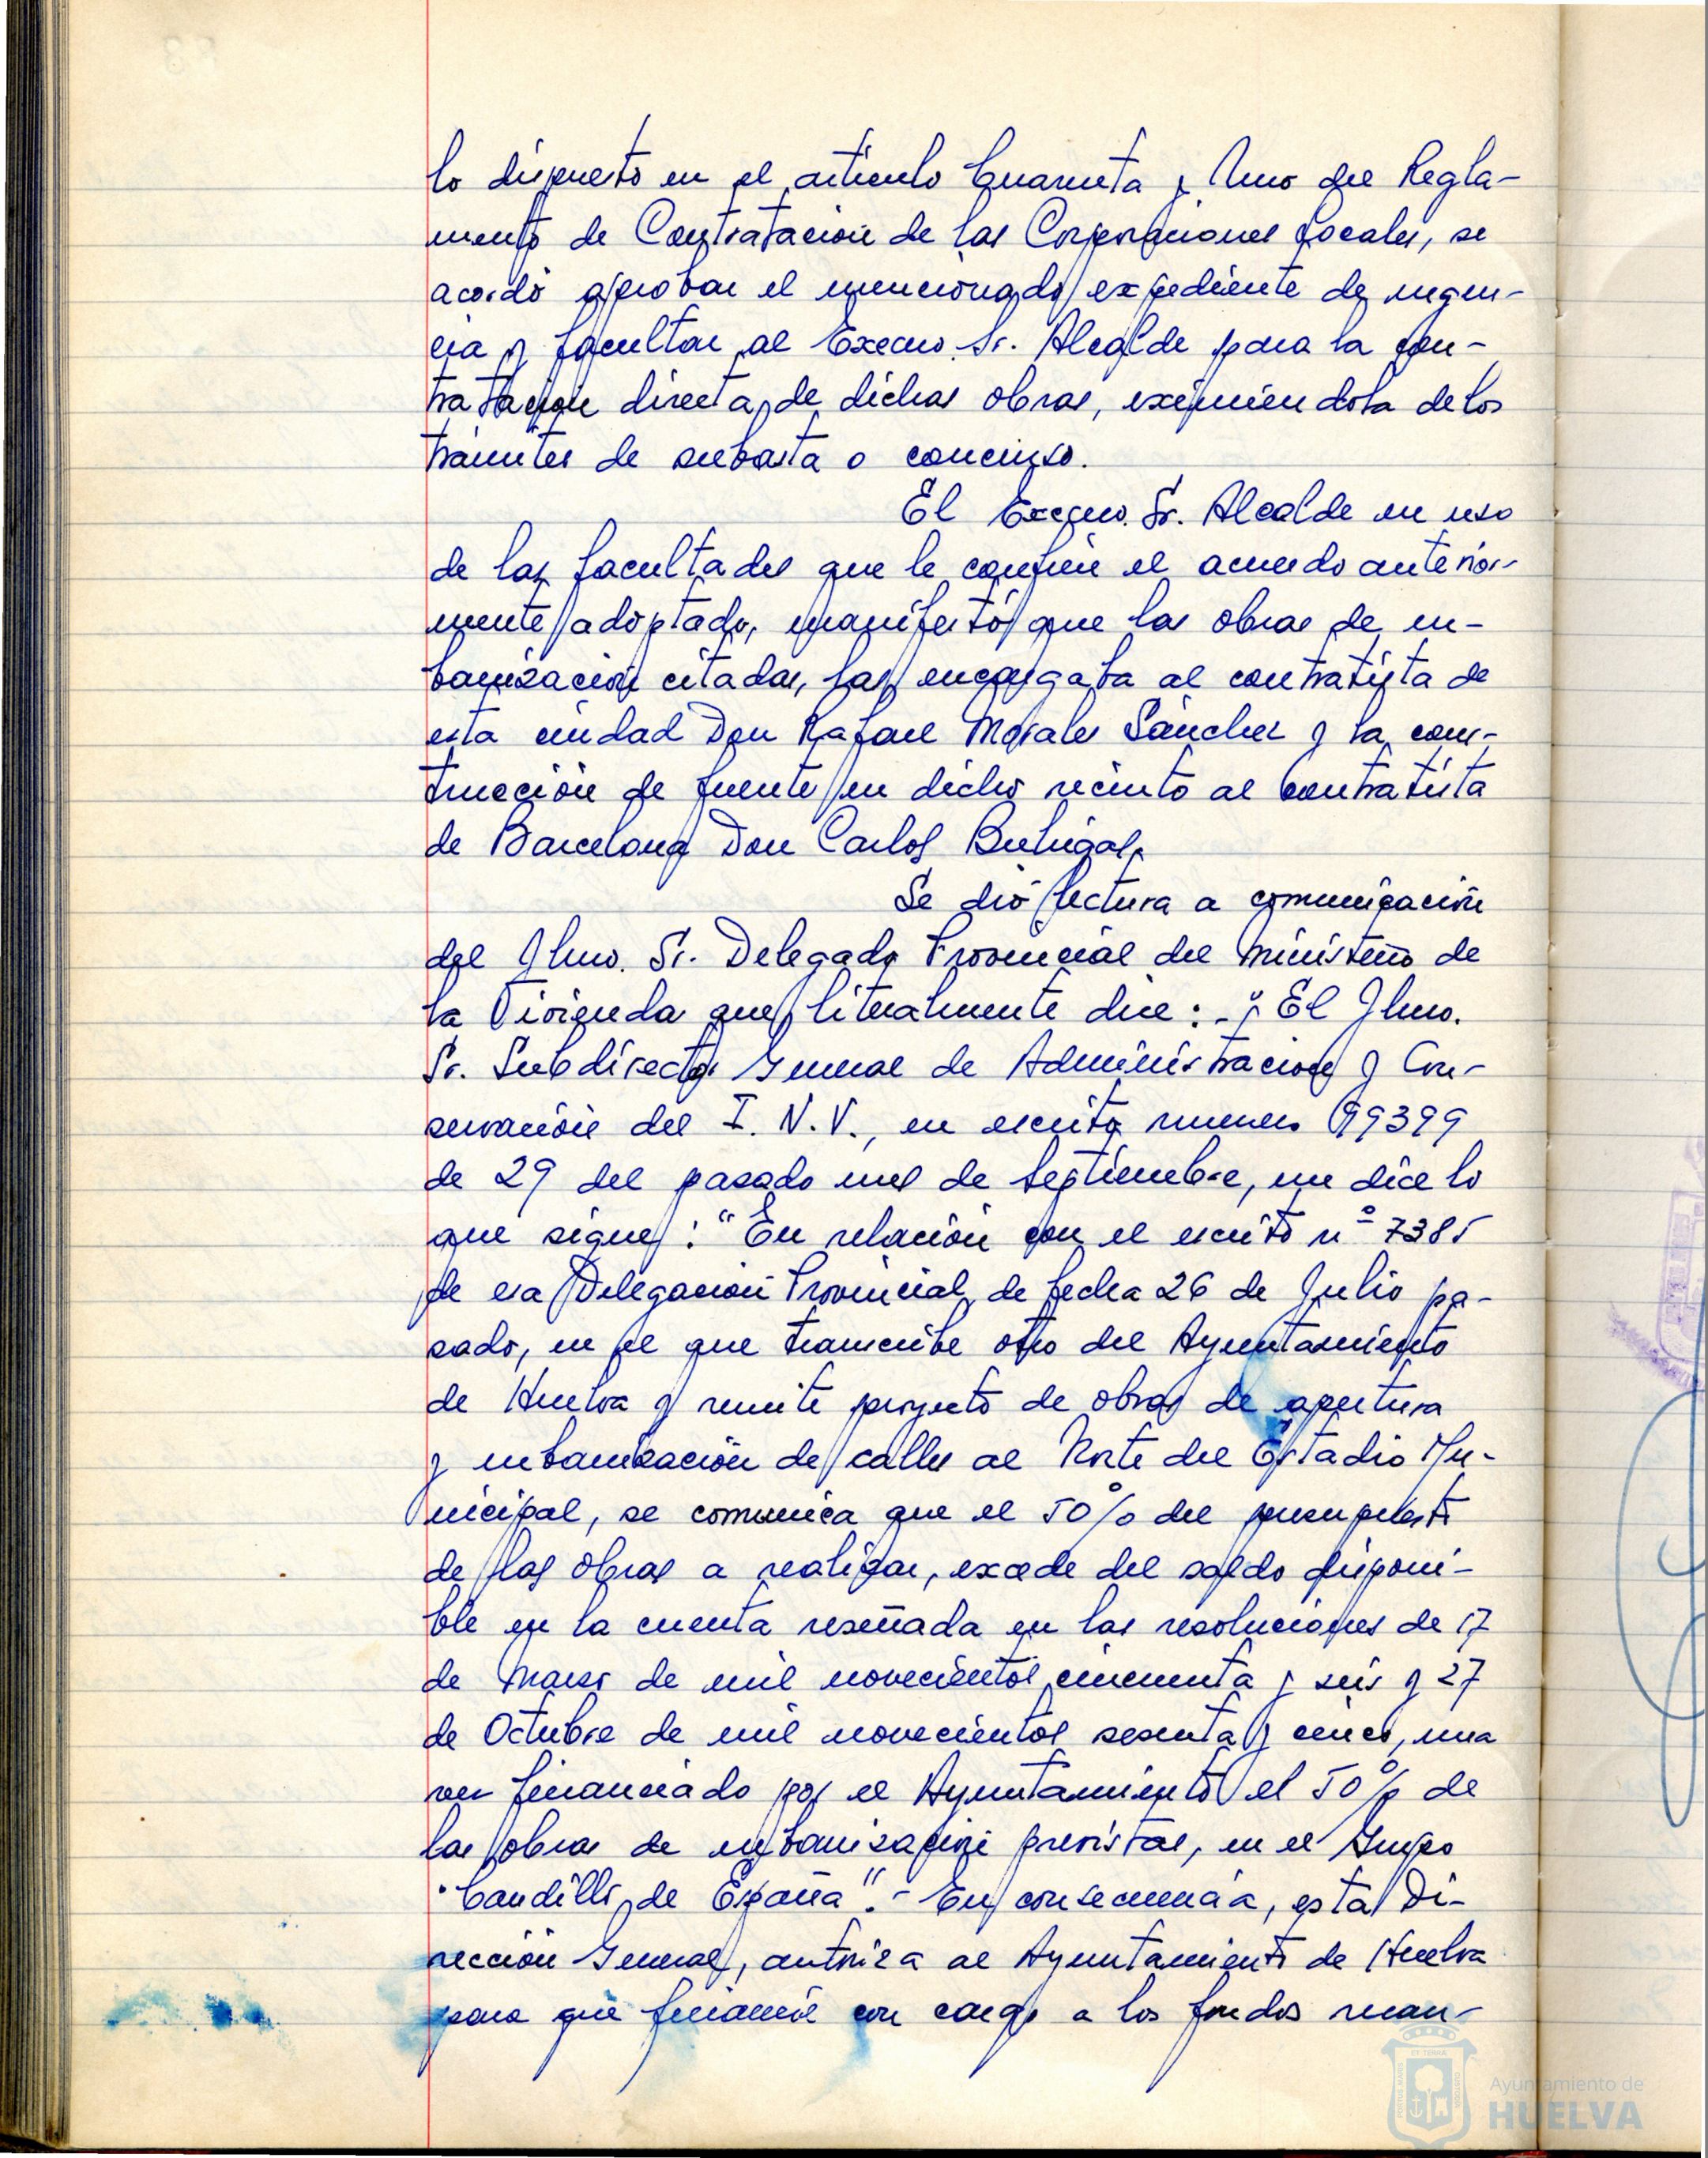 lo dispuesto en el artículo Cuarenta y Uno del Regla-
mento de Contratación de las Corporaciones Locales, se
acordó aprobar el mencionado expediente de urgen-
cia y facultar al Excmo. Sr. Alcalde para la con-
tratación directa de dichas obras, eximiéndola de los
trámites de subasta o concurso.
El Excmo. Sr. Alcalde en uso
de las facultades que le confiere el acuerdo anterior-
mente adoptado, manifestó que las obras de ur-
banización citadas, las encargaba al contratista de
esta ciudad Don Rafael Morales Sánchez y la cons-
trucción de fuente en dicho recinto al contratista
de Barcelona Don Carlos Buhigas.
Se dió lectura a comunicación
del Ilmo. Sr. Delegado Provincial del Ministerio de
la Vivienda que literalmente dice: - "El Ilmo.
Sr. Subdirector General de Administracion y Con-
servación del I. N. V., en escrito numero 99399
de 29 del pasado mes de Septiembre, me dice lo
que sigue: "En relación con el escrito nº 7385
de esa Delegación Provincial, de fecha 26 de Julio pa-
sado, en el que transcribe otro del Ayuntamiento
de Huelva y remite proyecto de obras de apertura
y urbanización de calles al Norte del Estadio Mu-
nicipal, se comunica que el 50% del presupuesto
de las obras a realizar, excede del saldo disponi-
ble en la cuenta reseñada en las resoluciones de 17
de Marzo de mil novecientos cincuenta y seis y 27
de Octubre de mil novecientos sesenta y cinco, una
vez financiado por el Ayuntamiento el 50% de
las obras de urbanización previstas, en el Grupo
"Caudillo de España". - En consecuencia, esta Di-
rección General, autoriza al Ayuntamiento de Huelva
para que financie con cargo a los fondos rema-
Ayuntamiento de
HUELVA